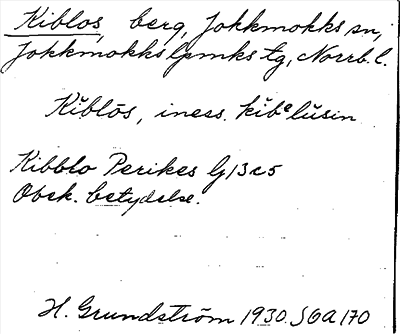 Kiblos, berg, Jokkmokks sn,
Jokkmokks lpmks tg, Norrb. l.
Kĭblōs, iness. kĭbᵉlŭsin
Kibblo Perikes G 13 a 5
Obek. betydelse.
H. Grundström 1930. SOA 170